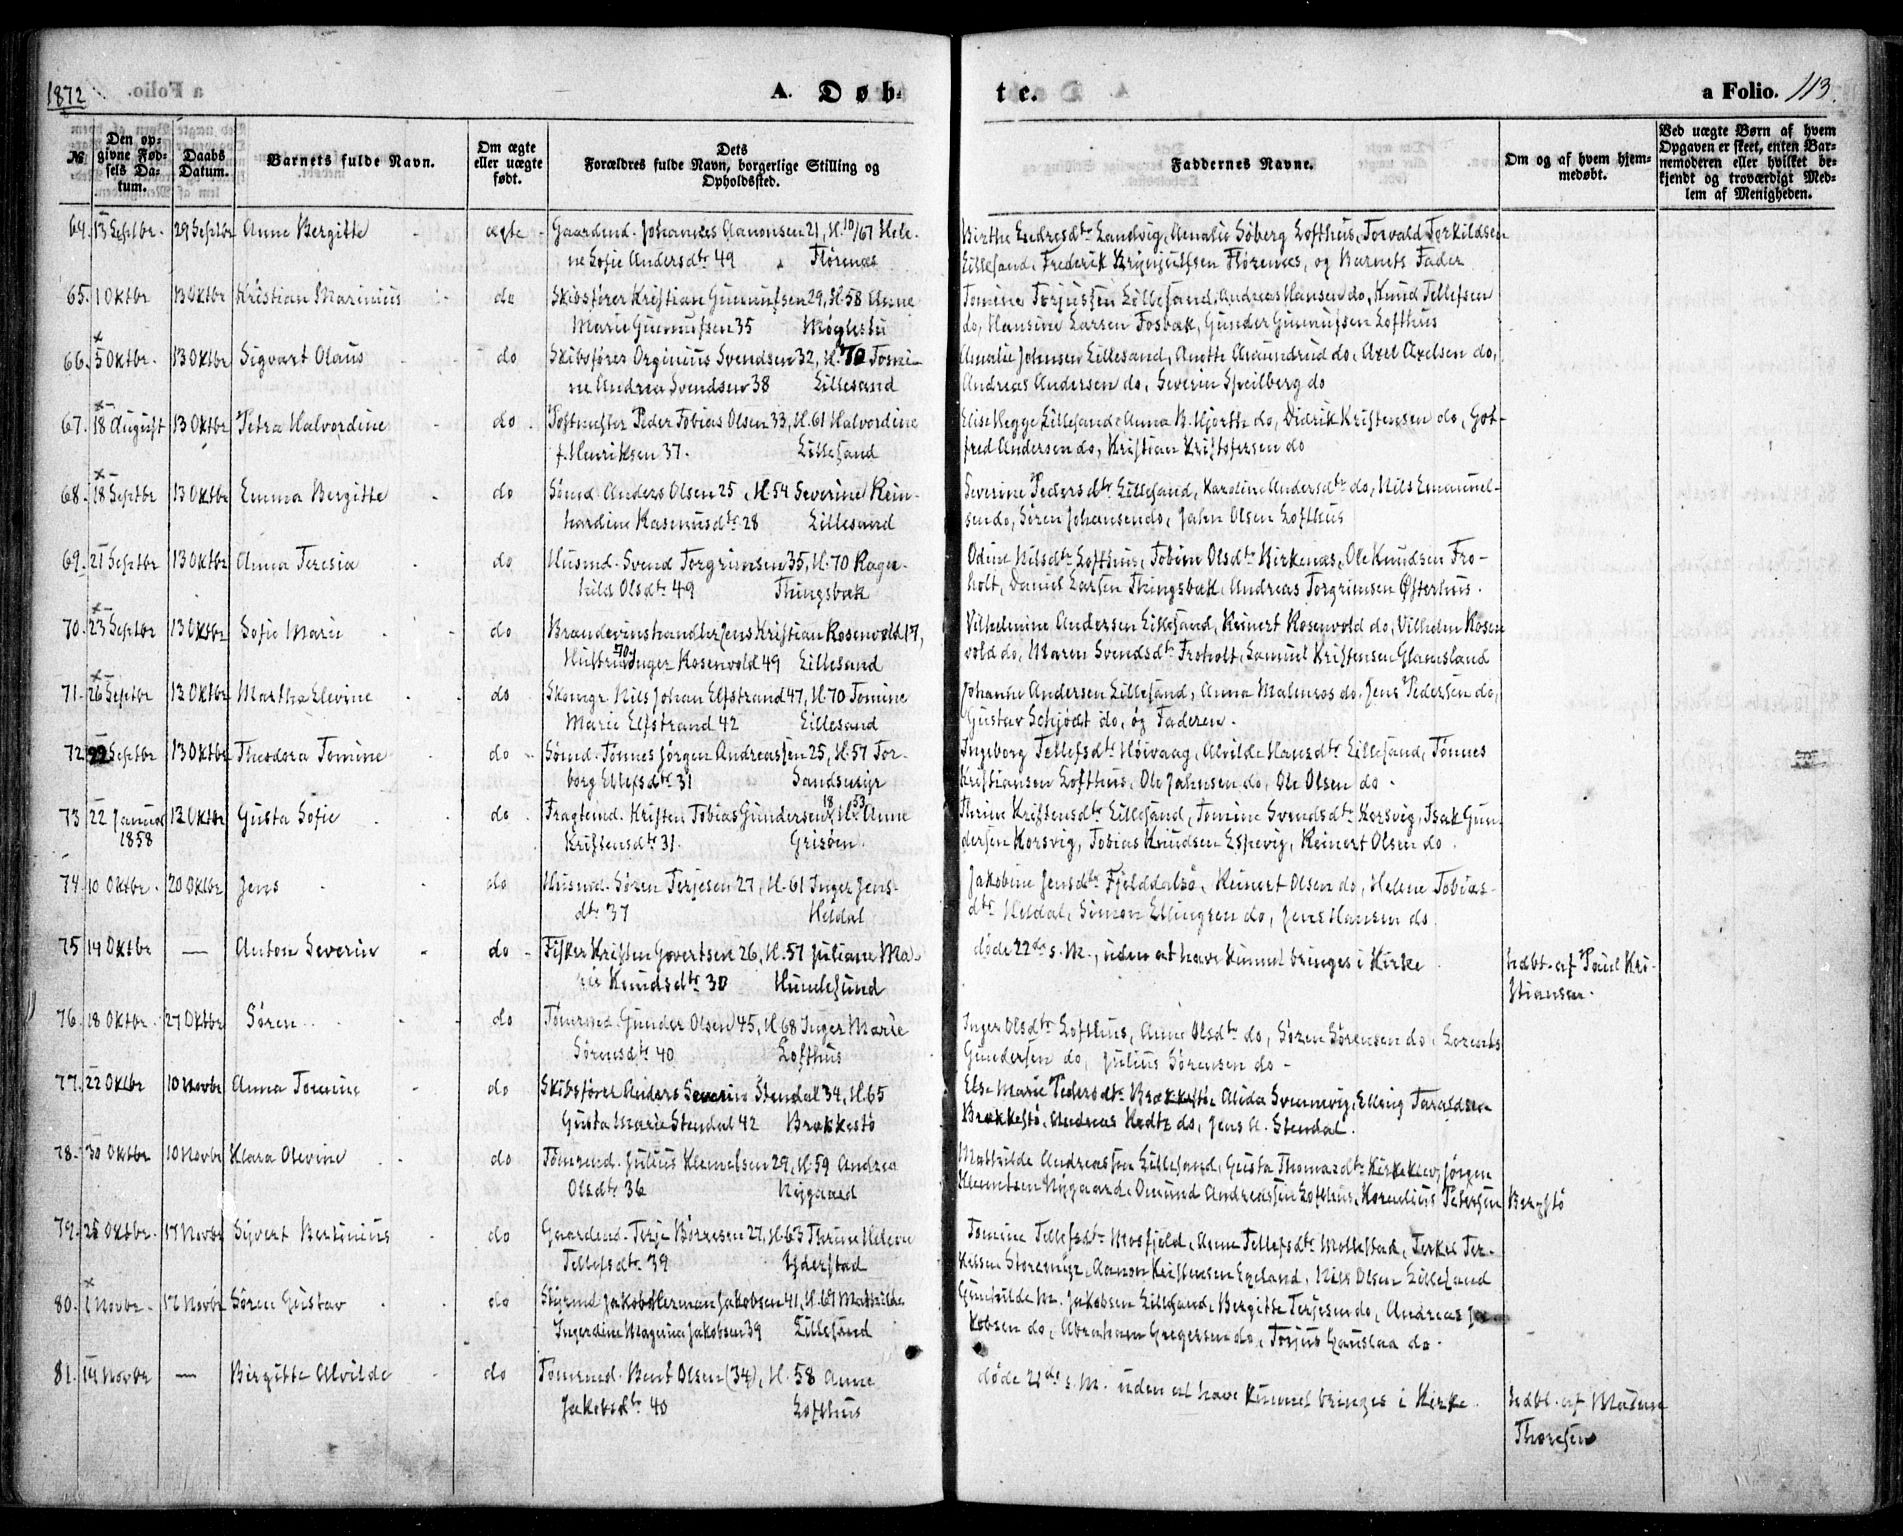 1872
A. Døb-
te.
a Folio. 113.
№
Den opgivne Fødsels Datum.
Daabs Datum.
Barnets fulde Navn.
Om ægte eller uægte født.
Dets Forældres fulde Navn, borgerlige Stilling og Opholdssted.
Faddernes Navne.
Om og af hvem hjemmedøbt.
Ved uægte Børn af hvem Opgaven er skeet, enten Barnemoderen eller hvilket bekjendt og troværdigt Medlem af Menigheden.
64. 13 Septbr. 29 Septbr Anne Bergitte - ægte - Gaardmd. Johannes Aanonsen 21, H. 10/67 Hele-
ne Sofie Andersdtr 49 Flørenæs
Birthe Endresdtr Landvig, Amalie Søberg Lofthus, Torvald Torkildsen
Lillesand, Frederik Brynjulfsen Flørenæs, og Barnets Fader
65. 1 Oktbr 13 Oktbr Kristian Marinius - do Skibsfører Kristian Gunnufsen 29, H. 58 Anne
Marie Gunnufsen 35 Møglestu
Tomine Torjussen Lillesand, Andreas Hansen do, Knud Tellefsen
do, Hansine Larsen Fosbæk, Gunder Gunnufsen Lofthus
66. 5 Oktbr. 13 Oktbr Sigvart Olaus - do Skibsfører Orginius Svendsen 32, H. 70 Tomi-
ne Andrea Svendsen 38 Lillesand
Amalie Johnsen Lillesand, Anette Amundrud do, Axel Axelsen do,
Andreas Andersen do, Severin Speilberg do
67. 18 August 13 Oktbr Petra Halvordine - do Postmester Peder Tobias Olsen 33, H. 61 Halvordine
f. Henriksen 37. Lillesand
Elise Hegge Lillesand, Anna B. Hjorth do, Didrik Kristensen do, Got-
fred Andersen do, Kristian Kristofersen do
68. 18 Septbr 13 Oktbr Emma Bergitte - do Sømd. Anders Olsen 25, H. 54 Severine Rein-
hardine Rasmusdtr 28 Lillesand
Severine Pedersdtr Lillesand, Karoline Andersdtr do, Nils Emanuel-
sen do, Søren Johansen do, Jahn Olsen Lofthus
69. 21 Septbr 13 Oktbr Anna Teresia - do Husmd. Svend Torgrimsen 35, H. 70 Ragn-
hild Olsdtr 49 Thingsbæk
Odine Nilsdtr Lofthus, Tobine Olsdtr Birkenæs, Ole Knudsen Fro-
holt, Daniel Larsen Thingsbæk, Andreas Torgrimsen Østerhus.
70. 23 Septbr 13 Oktbr Sofie Marie - do Brændevinshandler Jens Kristian Rosenvold 17,
Hustru 70 Inger Rosenvold 49 Lillesand
Vilhelmine Andersen Lillesand, Reinert Rosenvold do, Vilhelm Rosen
vold do, Maren Svendsdtr Froholt, Samuel Kristensen Glamsland
71. 26 Septbr 13 Oktbr Martha Elevine - do Skomgr. Nils Johan Elfstrand 47, H. 70 Tomine
Marie Elfstrand 42 Lillesand
Johanne Andersen Lillesand, Anna Malmros do, Jens Pedersen do,
Gustav Schjødt do, og Faderen.
72. 22 Septbr 13 Oktbr Theodora Tomine do - Sømd. Tønnes Jørgen Andreassen 25, H. 57 Tor-
borg Ellefsdtr 31 Sandsmyr
Ingeborg Tellefsdtr Høivaag, Alvilde Hansdtr Lillesand, Tønnes
Kristiansen Lofthus, Ole Jahnsen do, Ole Olsen do.
73 22 Januar 1858 13 Oktbr Gusta Sofie - do - Fragtemd. Kristen Tobias Gundersen 18, H. 53 Anne
Kristensdtr 31. Grisøen.
Thrine Kristensdtr Lillesand, Tomine Svendsdtr Korsvig, Isak Gun-
dersen Korsvig, Tobias Knudsen Espevig, Reinert Olsen do.
74. 10 Oktbr. 20 Oktbr. Jens - do Husmd. Søren Terjesen 27, H. 61 Inger Jens-
dtr 37 Heldal
Jakobine Jensdtr Fjelddalsø, Reinert Olsen do, Helene Tobias-
dtr Heldal, Simon Ellingsen do, Jens Hansen do.
75 14 Oktbr — Anton Severin - do - Fisker Kristen Govertsen 26, H. 57 Juliane Ma-
rie Knudsdtr 30 Humlesund
døde 22de s. M., uden at have kunnet bringes i Kirke
hdbt. af Paul Kri-
stiansen.
76. 18 Oktbr. 27 Oktbr Søren - do Tømrmd. Gunder Olsen 45, H. 68 Inger Marie
Sørensdtr 40 Lofthus
Inger Olsdtr Lofthus, Anne Olsdtr do, Søren Sørensen do, Lorents
Gundersen do, Julius Sørensen do -
77. 22 Oktbr 10 Novbr Anna Tomine - do Skibsfører Anders Severin Stendal 34, H. 65
Gusta Marie Stendal 42 Brækkestø
Else Marie Pedersdtr Brækkestø, Alida Svennevig, Elling Taraldsen
Brækkestø, Andreas Hodtz do, Jens A. Stendal.
78. 30 Oktbr 10 Novbr Klara Olevine - do Tømrmd. Julius Klemetsen 29, H. 59 Andrea
Olsdtr 36 Nygaard
Mathilde Andreassen Lillesand, Gusta Thomasdtr Kirkeklev, Jørgen
Klemetsen Nygaard, Omund Andreassen Lofthus, Kornelius Petersen Bergstø
79. 25 Oktbr. 17 Novbr Syvert Bertinius do Gaardmd. Terje Børresen 27, H. 63 Thrine Helene
Tellefsdtr 39 Ytterstad
Tomine Tellefsdtr Mosfjeld, Anne Tellefsdtr Mollestad, Terkel Ter-
kelsen Storemyr, Aanon Kristensen Egeland, Nils Olsen Lillesand
80. 1 Novbr. 17 Novbr Søren Gustav - do Styrmd Jakob Herman Jakobsen 41, H. 67 Mathilde
Ingerdine Magrina Jakobsen 39 Lillesand
Gunhilde M. Jakobsen Lillesand, Bergitte Terjesen do, Andreas Ja-
kobsen do, Abraham Gregersen do, Torjus Hauslaa do.
81. 14 Novbr — Birgitte Alvilde - do Tømrmd. Bent Olsen (34), H. 58 Anne
Jakobsdtr 40 Lofthus
døde 21de s. M. uden at have kunnet bringes i Kirke.
hdbt. af Madam
Thoresen